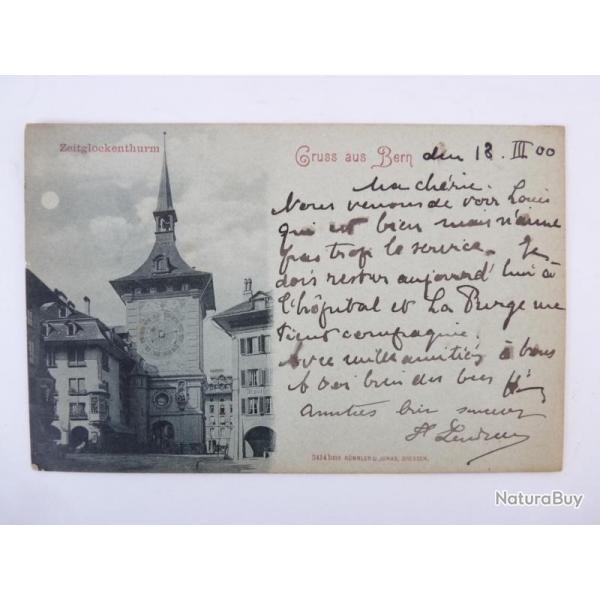 Zeitglockenthurm
Gruss aus Bern den 18. III 00
Ma chérie.
Nous venons de voir Louis
qui est bien mais n'aime
pas trop le service. Je
dois rester aujourd'hui à
l'hôpital et La Burge me
tient compagnie.
Avec mille amitiés à tous
Amitiés bien sincères
5414 bunt RÖMMLER & JONAS, DRESDEN.
NaturaBuy